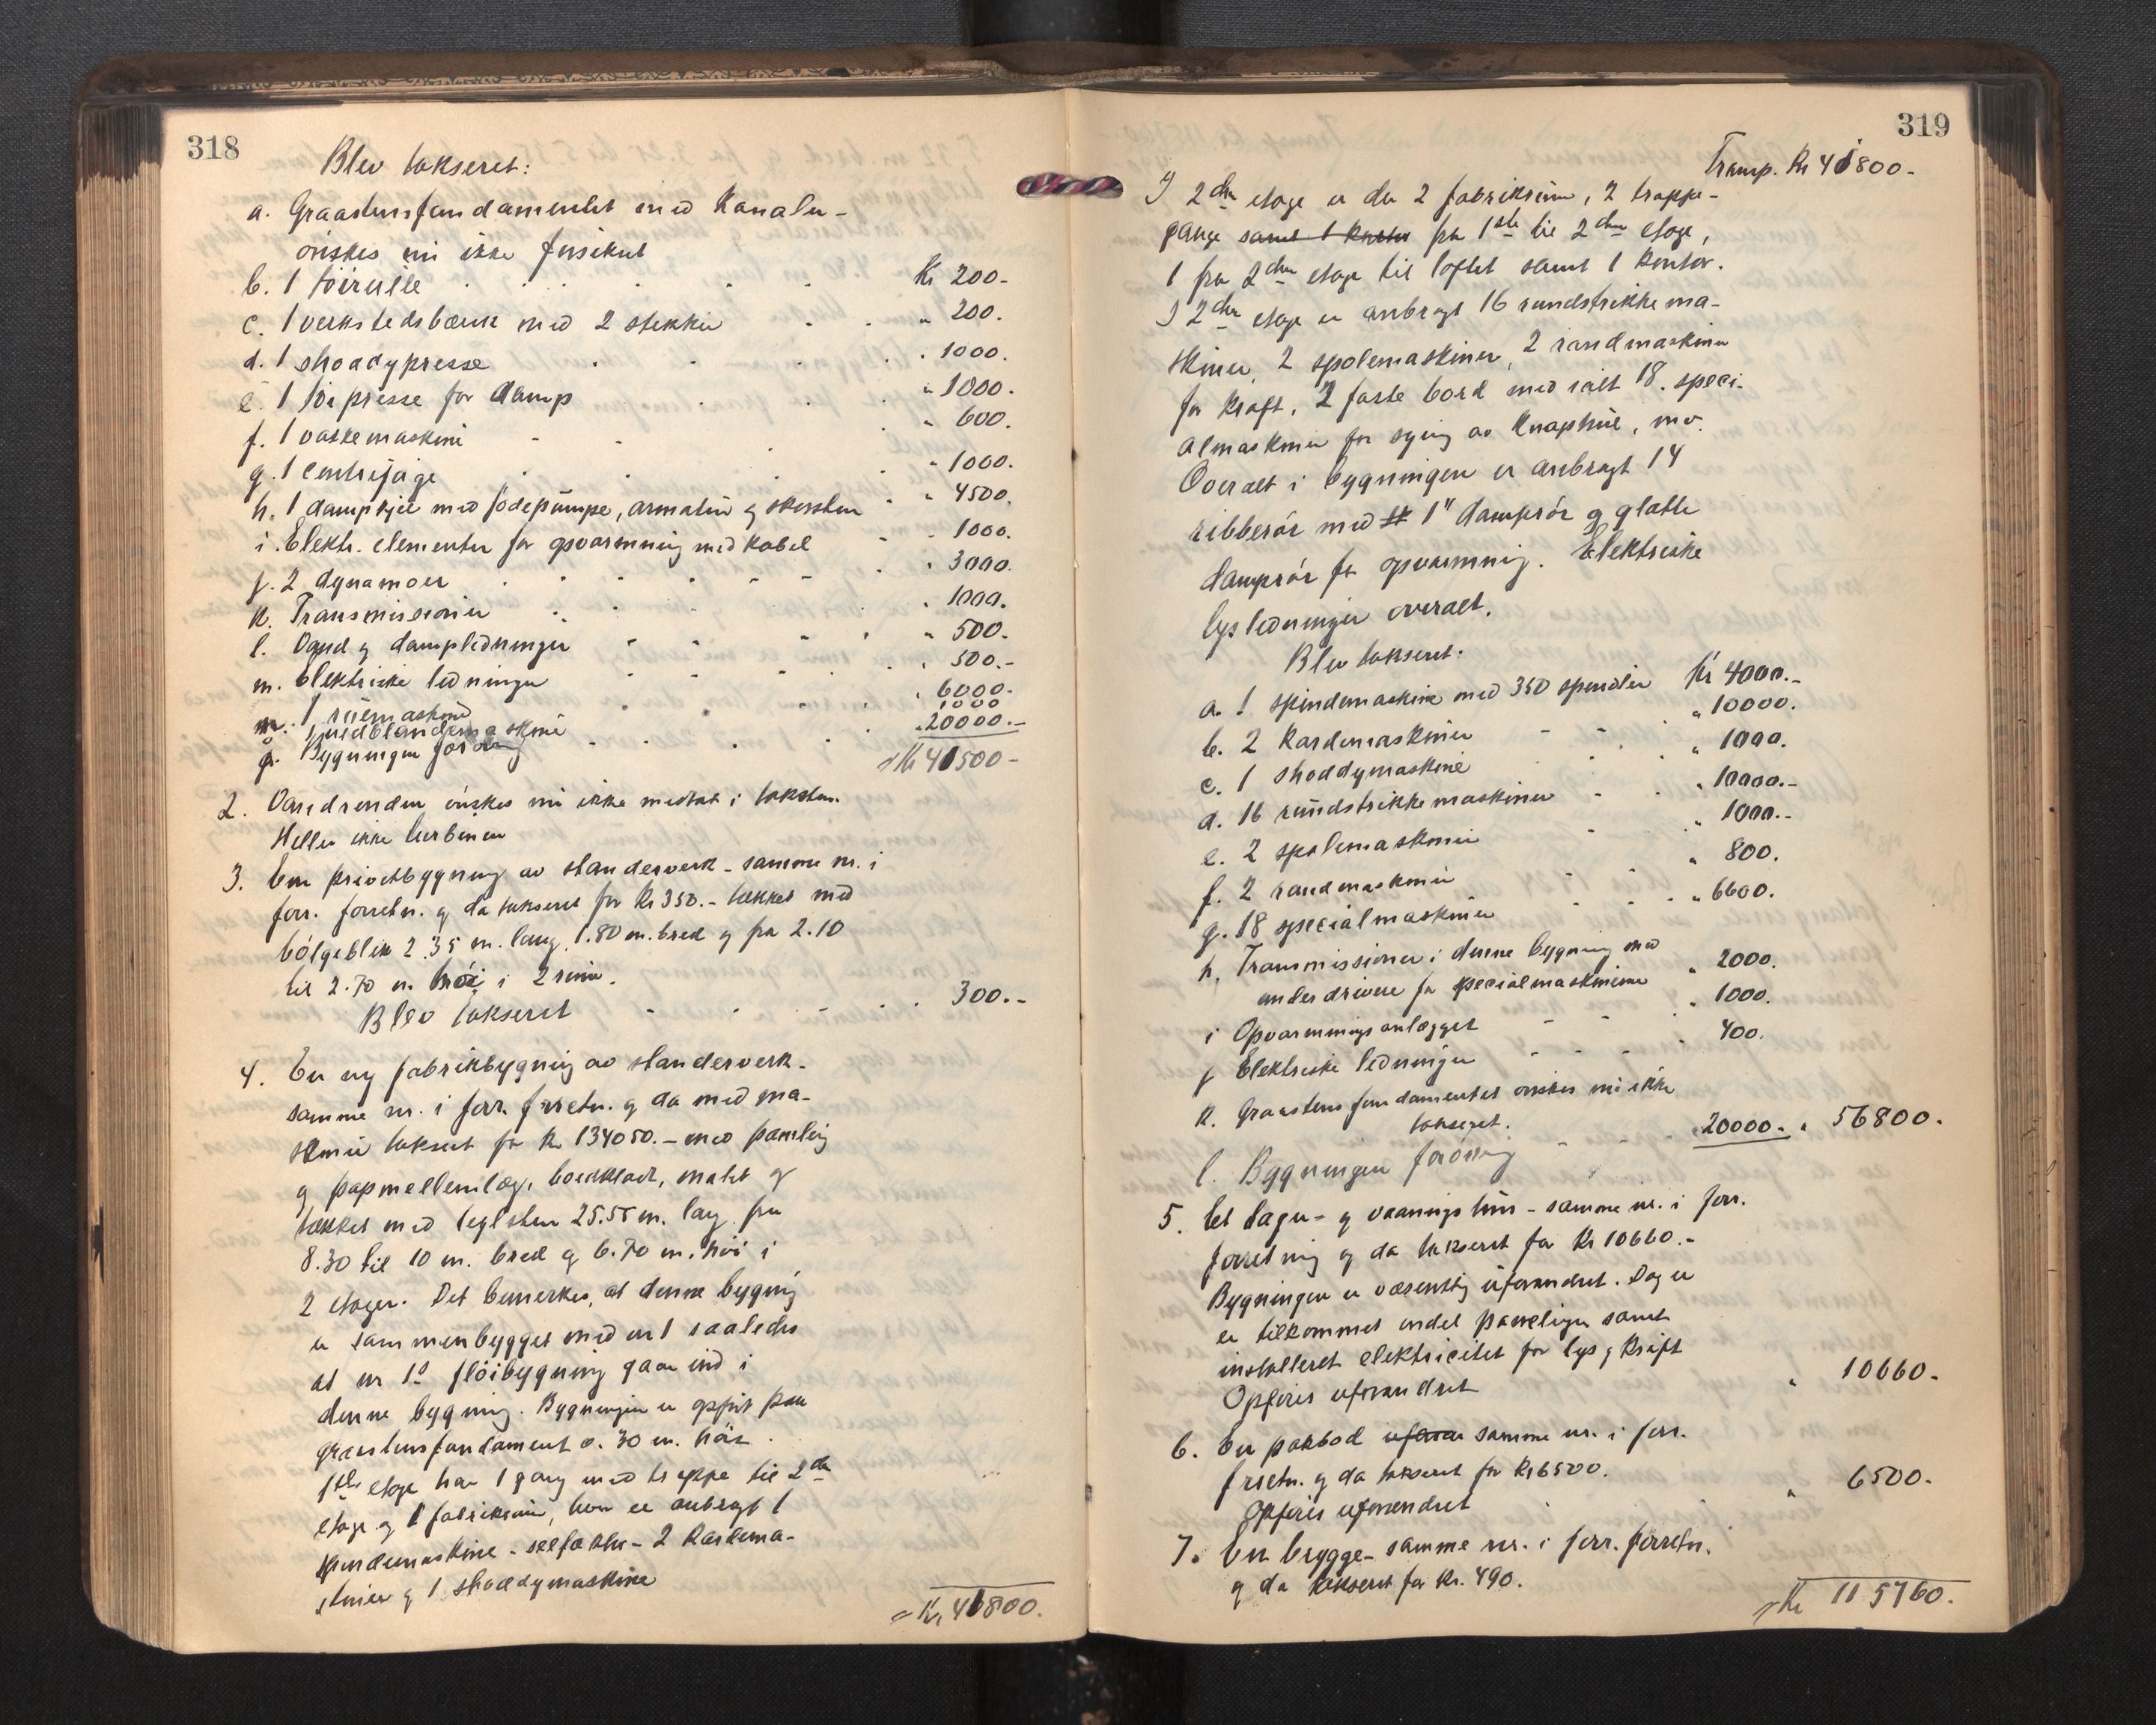 318
Blev takseret:
a. Graastensfundamentet med Kanaler
önskes nu ikke forsikret
b. 1 töirulle Kr 200.-
c. 1 verkstedsbænk med 2 stekker " 200.
d. 1 shoddypresse " 1000.
e. 1 töipresse for damp " 1000.
f. 1 vaskemaskine " 600.
g. 1 Centrifuge " 1000.
h. 1 dampkjel med födepumpe, armatur og skorsten " 4500.
i. Elektr. elementer for opvarmning med Kabel " 1000.
j. 2 dynamoer " 3000.
k. Transmissioner " 1000.
l. Vand og dampledninger " 500.
m. Elektriske ledninger " 500.-
n. 1 riemaskine " 6000.-
o. 1 uldblandemaskine 1000
p. Bygningen forövrig " 20000.-
Kr 41500-
2. Vandrenden önskes nu ikke medtat i taksten.
Heller ikke turbinen
3. En privetbygning av standerverk - samme nr. i
forr. forretn. og da takseret for Kr 350.- tækket med
bölgeblik 2.35 m. lang, 1.80 m. bred og fra 2.10
til 2.70 m. höi i 2 rum.
Blev takseret 300.-
4. En ny fabrikbygning av standerverk -
samme nr. i forr. forretn. og da med ma-
skiner takseret for Kr 134050.- med paneling
og papmellemlæg, bordklædt, malet og
tækket med teglsten 25.55 m. lang fra
8.30 til 10 m. bred og 6.70 m. höi i
2 etager. Det bemerkes, at denne bygning
er sammenbygget med nr 1 saaledes
at nr 1s flöibygning gaar ind i
denne bygning. Bygningen er opfört paa
graastensfundament o. 30 m. höi.
1ste etage har 1 gang med trappe til 2den
etage og 1 fabrikrum, hvor er anbragt 1
spindemaskine - selfaktor - 2 Kardema-
skiner og 1 shoddymaskine
= Kr. 41800.
319
Transp. Kr 41800.-
I 2den etage er der 2 fabrikrum, 2 trappe-
gange samt 1 kontor fra 1ste til 2den etage,
1 fra 2den etage til loftet samt 1 kontor.
I 2den etage er anbragt 16 rundstrikkema-
skiner, 2 spolemaskiner, 2 randmaskiner
for kraft, 2 faste bord med ialt 18 speci-
almaskiner for sying av Knaphul, mv.
Overalt i bygningen er anbragt 14
ribberör med 1" damprör og glatte
damprör for opvarmning. Elektriske
lysledninger overalt.
Blev takseret.
a. 1 spindemaskine med 350 spindler Kr 4000.-
b. 2 Kardemaskiner " 10000.
c. 1 shoddymaskine " 1000.
d. 16 rundstrikkemaskiner " 10000.-
e. 2 spolemaskiner " 1000.-
f. 2 randmaskiner " 800.
g. 18 specialmaskiner " 6600.
h. Transmissioner i denne bygning med
underdrivere for specialmaskinerne " 2000.
i Opvarmningsanlægget " 1000.
j Elektriske ledninger " 400.
k. Graastensfundamentet önskes nu ikke
takseret.
l. Bygningen forövrig 20000.- " 56800.
5. Et lager- og vaaningshus - samme nr. i forr.
forretning og da takseret for Kr 10660.-
Bygningen er væsentlig uforandret. Dog er
er tilkommet endel panelinger samt
installeret elektricitet for lys og kraft
Opföres uforandret " 10660.-
6. En pakbod uforan samme nr. i forr.
forretn. og da takseret for Kr 6500.
Opföres uforandret " 6500.-
7. En brygge - samme nr. i forr. forretn.
og da takseret for Kr. 490.
Kr 115760.